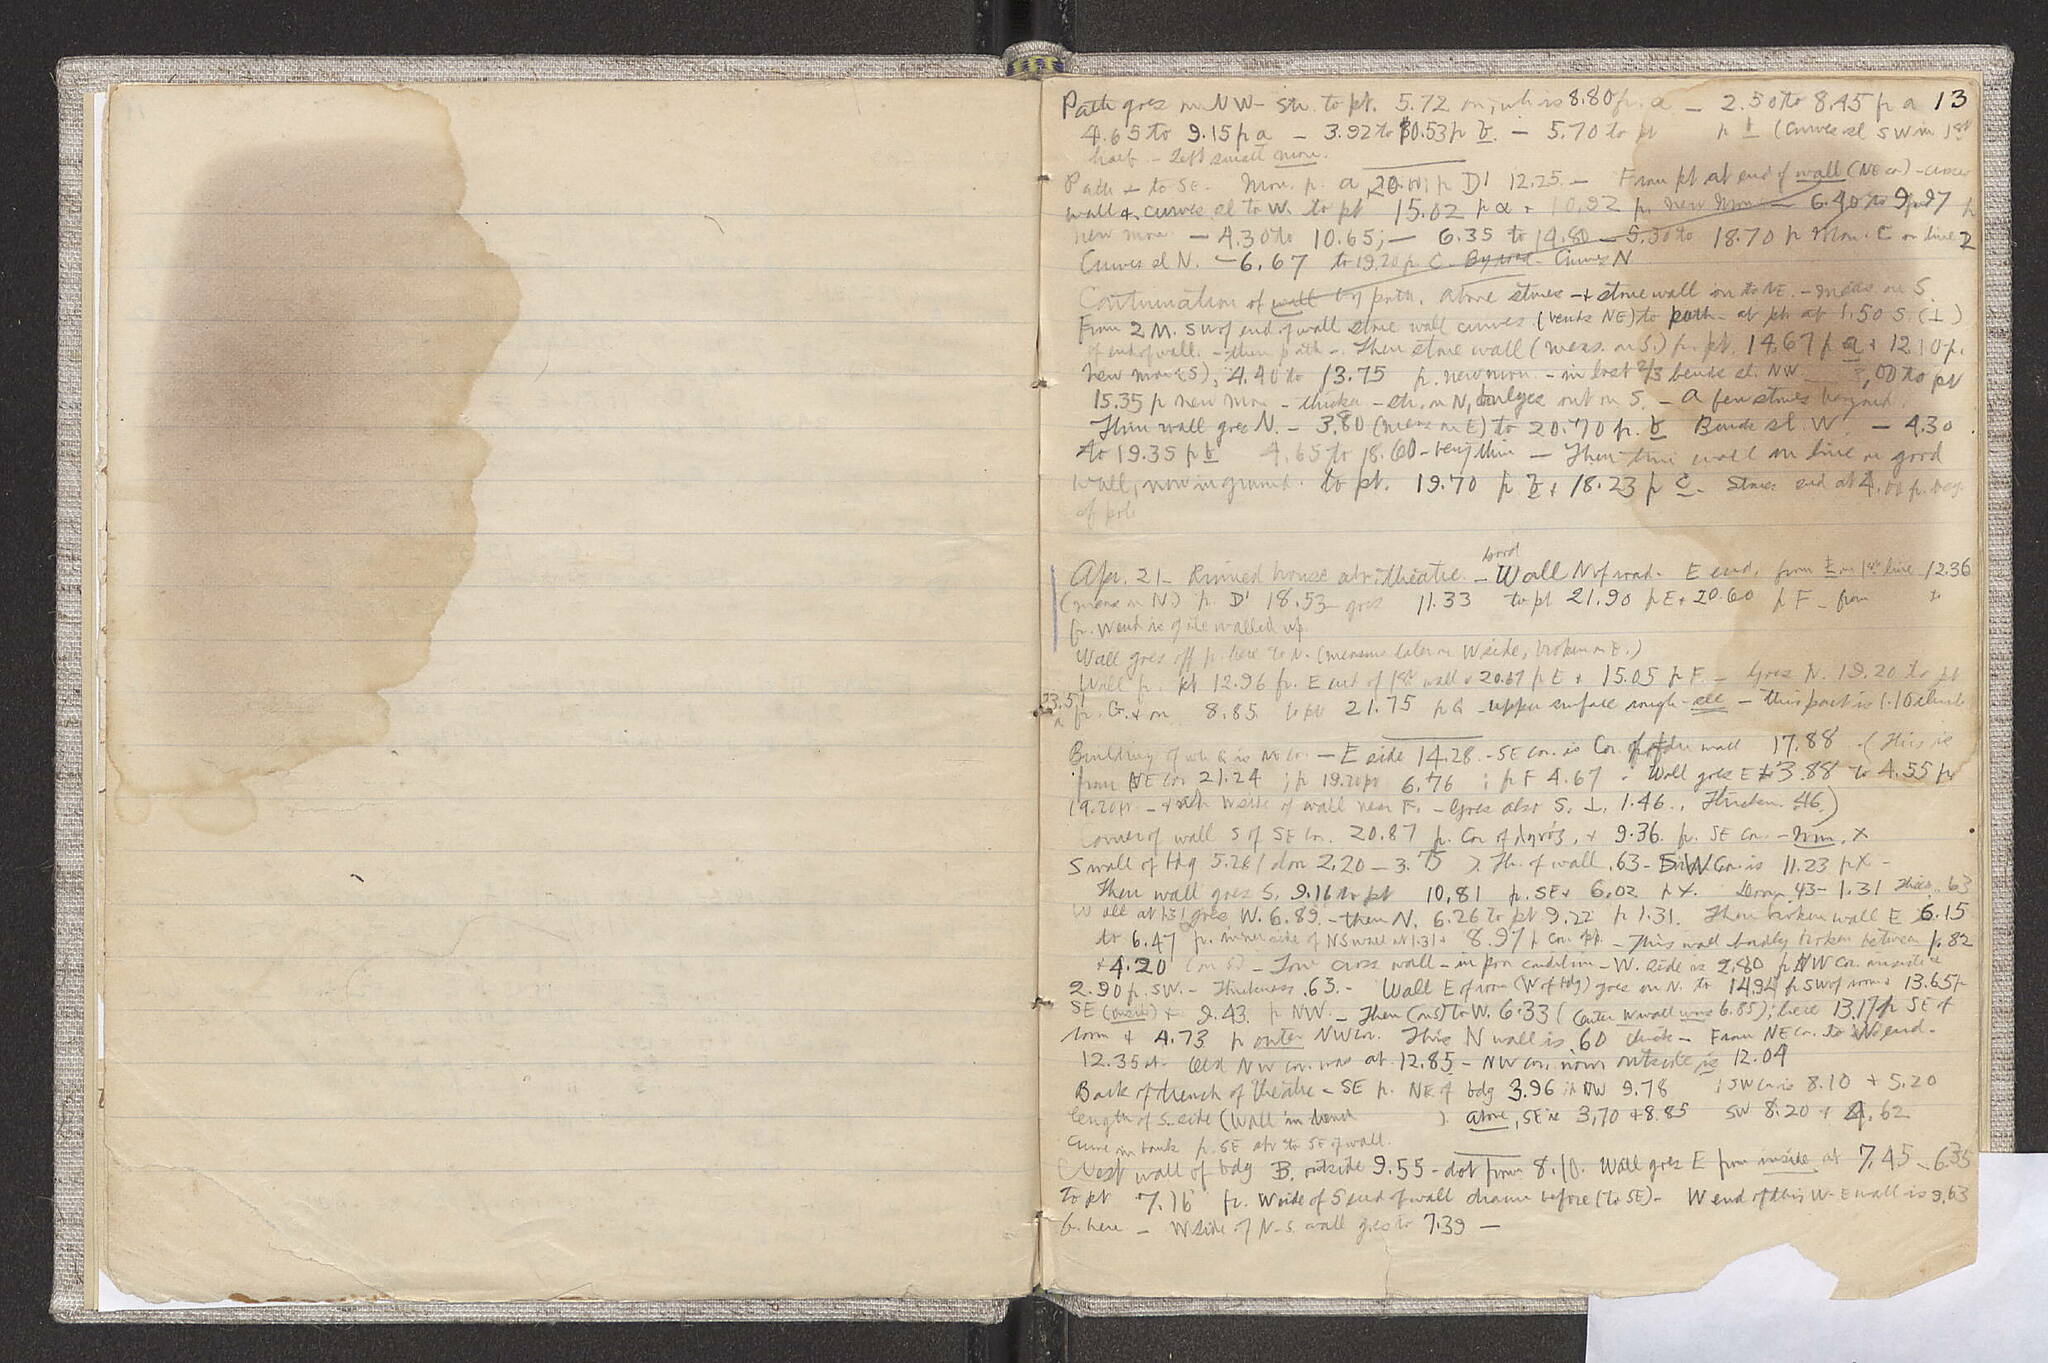 Path goes on NW - str. to pt. 5.72 on, wh is 8.80 fr. a - 2.50 to 8.45 fr a 13
4.65 to 9.15 fr a - 3.92 to 10.53 fr b. - 5.70 to pt fr b (curves sl SW in 1st
half - left small mon.
Path to SE. Mon. fr. a 20.10; fr D' 12.25 - From pt at end of wall (NE cor) - crosses
wall & curves sl to W. to pt 15.02 fr a + 10.92 fr. new mon - 6.40 to 9.97 fr
new mon. - 4.30 to 10.65; - 6.35 to 14.80 - 5.30 to 18.70 fr Mon. C on line 2
Curves sl N. - 6.67 to 19.20 fr. C Curves N
Continuation of wall by path, above stones - stone wall on to NE. - meas on S.
From 2 M. SW of end of wall stone wall curves (bends NE) to path - at pt at 1.50 S. (⊥)
of end of wall. - then path -. Then stone wall (meas. on S.) fr. pt. 14.67 fr a + 12.10 fr.
new mon (S), 4.40 to 13.75 fr. new mon - in last 2/3 bends sl. NW - 3.00 to pt
15.35 fr new mon - thicker - str. on N, bulges out on S. - A few stones beyond.
Then wall goes N. - 3.80 (meas on E) to 20.70 fr. b Bends sl. W - 4.30
to 19.35 fr b 4.65 to 18.60 - very thin - Then thin wall in line on good
wall, now in ground. to pt. 19.70 fr b + 18.23 fr c. Stones end at 4.00 fr. beg.
Apr. 21 - Ruined house abv. theatre. - Wall N of road. E end, from E on 1st line 12.36
(meas on N.) fr. D' 18.53 - goes 11.33 to pt 21.90 fr E + 20.60 fr F - from to
fr. W end is of ile walled up
Wall goes off fr. here to N. (measure later on W side, broken on E.)
Wall fr. pt 12.96 fr. E end of 1st wall + 20.67 fr E + 15.05 fr F - Goes N. 19.20 to pt
23.51 fr. G. & on 8.85 to pt 21.75 fr G - upper surface rough - all - this part is 1.10 thick
Building of wh G is NW cor - E side 14.28 - SE cor. is Cor. of other wall 17.88 - (This is
from NE cor 21.24; fr 19.20 pt 6.76; fr F 4.67 - Wall goes E 3.88 to 4.55 fr
19.20 pt. - with W side of wall near F. - Goes also S. ⊥. 1.46., thickn. .46)
Corner of wall S of SE cor. 20.87 fr. Cor of ἀγρός, + 9.36 fr. SE cor - mon. X
S wall of bdg 5.28 (door 2.20 - 3.15) Th. of wall .63 - SW Cor. is 11.23 fr X -
Then wall goes S. 9.16 to pt 10.81 fr. SE + 6.02 fr X. Door .43 - 1.31 thick. .63
Wall at 1.31 goes W. 6.89. - then N. 6.26 to pt 9.22 fr 1.31. Then broken wall E 6.15
to 6.47 fr. inner side of NS wall at 1.31 + 8.97 fr cor. opp. - This wall badly broken between fr. 82
+ 4.20 (on S) - Low cross wall - in poor condition - W. side is 2.80 fr NW cor. inside &
2.90 fr. SW. - Thickness .63. - Wall E of room (W of bdg) goes on N. to 14.94 fr SW of room + 13.65 fr
SE (inside) + 9.43 fr NW. - Then (on S) to W. 6.33 (outer W wall was 6.85); here 13.17 fr SE of
room + 4.73 fr outer NW cor. This N wall is .60 thick - From NE cor. to W end -
12.35 at. Old NW cor. was at 12.85 - NW cor. now outside is 12.04
Back of trench of theatre - SE fr. NE of bdg 3.96 + NW 9.78 ; SW cor is 8.10 + 5.20
length of S. side (Wall in trench ). above, SE is 3.70 + 8.85 SW 8.20 + 4.62
Curve in bank fr. SE abv to SE of wall.
West wall of bdg B. outside 9.55 - dot from 8.10. Wall goes E from inside at 7.45 - 6.35
to pt 7.16 fr. W side of S end of wall drawn before (to SE) - W end of this W-E wall is 9.63
fr. here - W side of N-S wall goes to 7.39 -